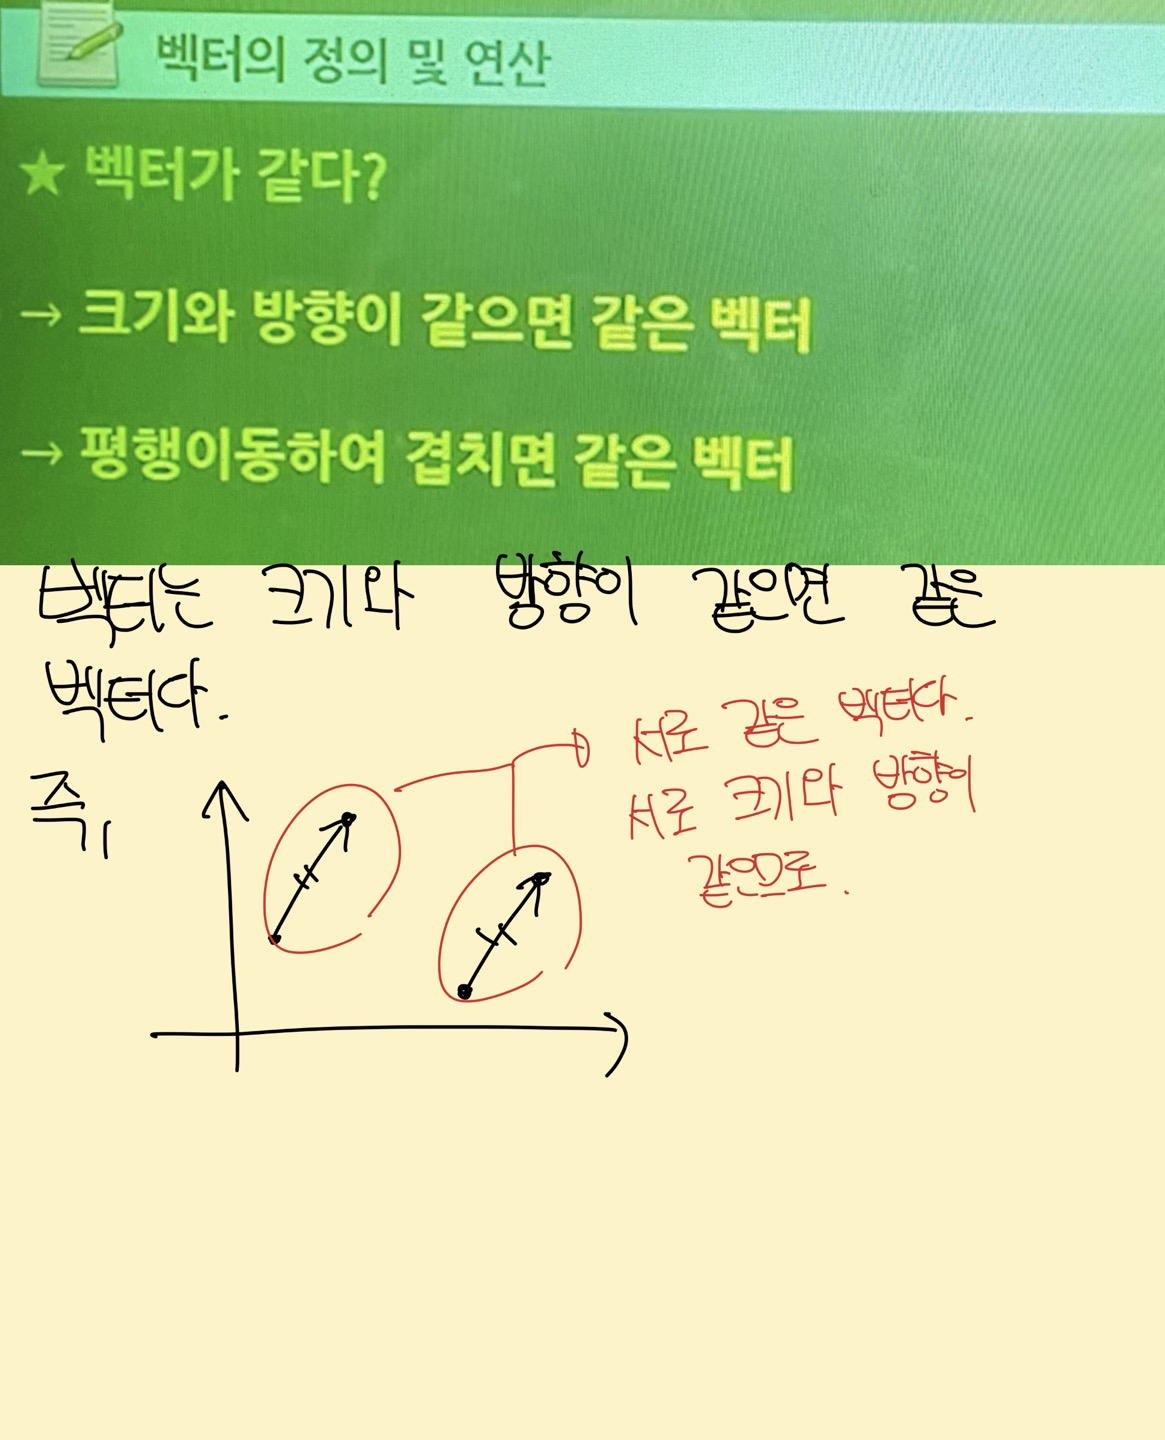 벡터의 정의 및 연산
★ 벡터가 같다?
→ 크기와 방향이 같으면 같은 벡터
→ 평행이동하여 겹치면 같은 벡터
벡터는 크기와 방향이 같으면 같은
벡터다.
서로 같은 벡터다.
즉,
서로 크기와 방향이
같으므로.